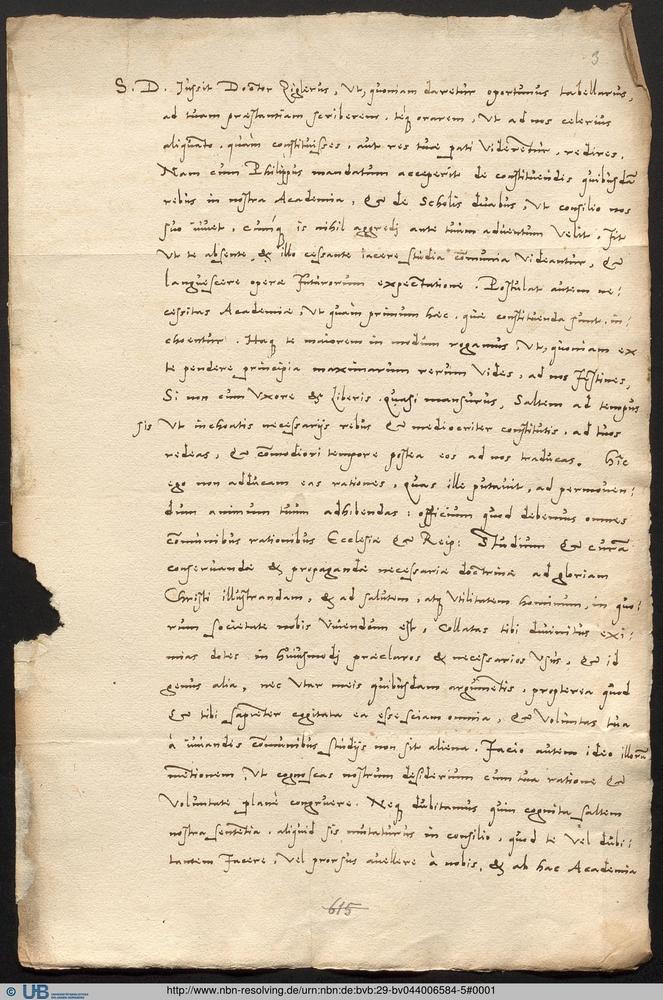 3
S. D. Jussit Doctor Ziglerus, Ut, quoniam daretur oportunus tabellarius,
ad tuam praestantiam scriberem, teq; orarem, Ut ad nos celerius
aliquanto, quàm constituisses, aut res tuae pati Videretur, redires.
Nam cum Philippus mandatum acceperit de constituendis quibusdā
rebus in nostra Academia, & de Scholis duabus, Ut consilio nos
suo iuuet, cumq; is nihil aggredj ante tuum aduentum Velit, fit
Ut te absente, & illo cessante iacere studia cōmunia Videantur, &
languescere operae futurorum expectatione. Postulat autem ne:
cessitas Academiae, Ut quàm primum haec, quae constituenda sunt, in:
choentur. Itaq; te maiorem in modum rogamus, Ut, quoniam ex
te pendere principia maximarum rerum Vides, ad nos festines,
Si non cum Uxore & liberis quasi mansurus, Saltem ad tempus
sis Ut inchoatis necessarijs rebus & mediocriter constitutis, ad tuos
redeas, & cōmodiori tempore postea eos ad nos traducas. Hic
ego non adducam eas rationes, quas ille putauit, ad permouen:
dum animum tuum adhibendas: officium quod debemus omnes
cōmunibus rationibus Ecclesiae & Reip: Studium & curā
conseruandae & propagandae necessariae doctrinae ad gloriam
Christi illustrandam, & ad salutem, atq; Utilitatem hominum, in quo:
rum societate nobis Viuendum est, Collatas tibi diuinitus exi:
mias dotes in huiusmodj praeclaros & necessarios Usus, & id
genus alia, nec Utar meis quibusdam argumētis, propterea quod
& tibi sapienter cogitata ea esse sciam omnia, & Voluntas tua
à iuuandis cōmunibus studijs non sit aliena. Facio autem ideo illorū
mentionem, Ut cognoscas nostrum desiderium cum tua ratione &
Voluntate planè congruere. Neq; dubitamus quin cognita saltem
nostra sententia, aliquid sis mutaturus in consilio, quod te Vel dubi:
tantem facere, Vel prorsus auellere à nobis, & ab hac Academia
615
© UB
http://www.nbn-resolving.de/urn:nbn:de:bvb:29-bv044006584-5#0001